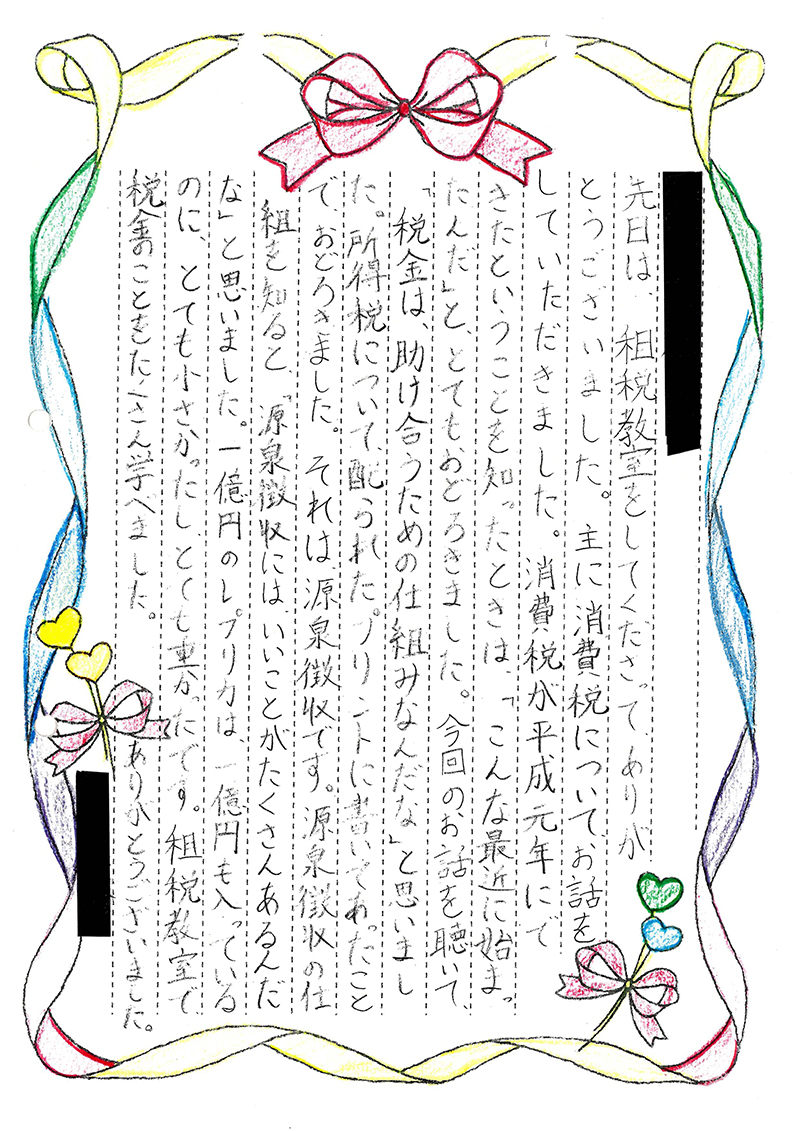 先日は、租税教室をしてくださって、ありが
とうございました。主に消費税について、お話を
していただきました。消費税が平成元年にで
きたということを知ったときは、「こんな最近に始まっ
たんだ」と、とてもおどろきました。今回のお話を聴いて、
「税金は、助け合うための仕組みなんだな」と思いまし
た。所得税について、配られたプリントに書いてあったこと
で、おどろきました。それは源泉徴収です。源泉徴収の仕
組を知ると、「源泉徴収には、いいことがたくさんあるんだ
な」と思いました。一億円のレプリカは、一億円も入っている
のに、とても小さかったし、とても重かったです。租税教室で
税金のことをたくさん学べました。ありがとうございました。